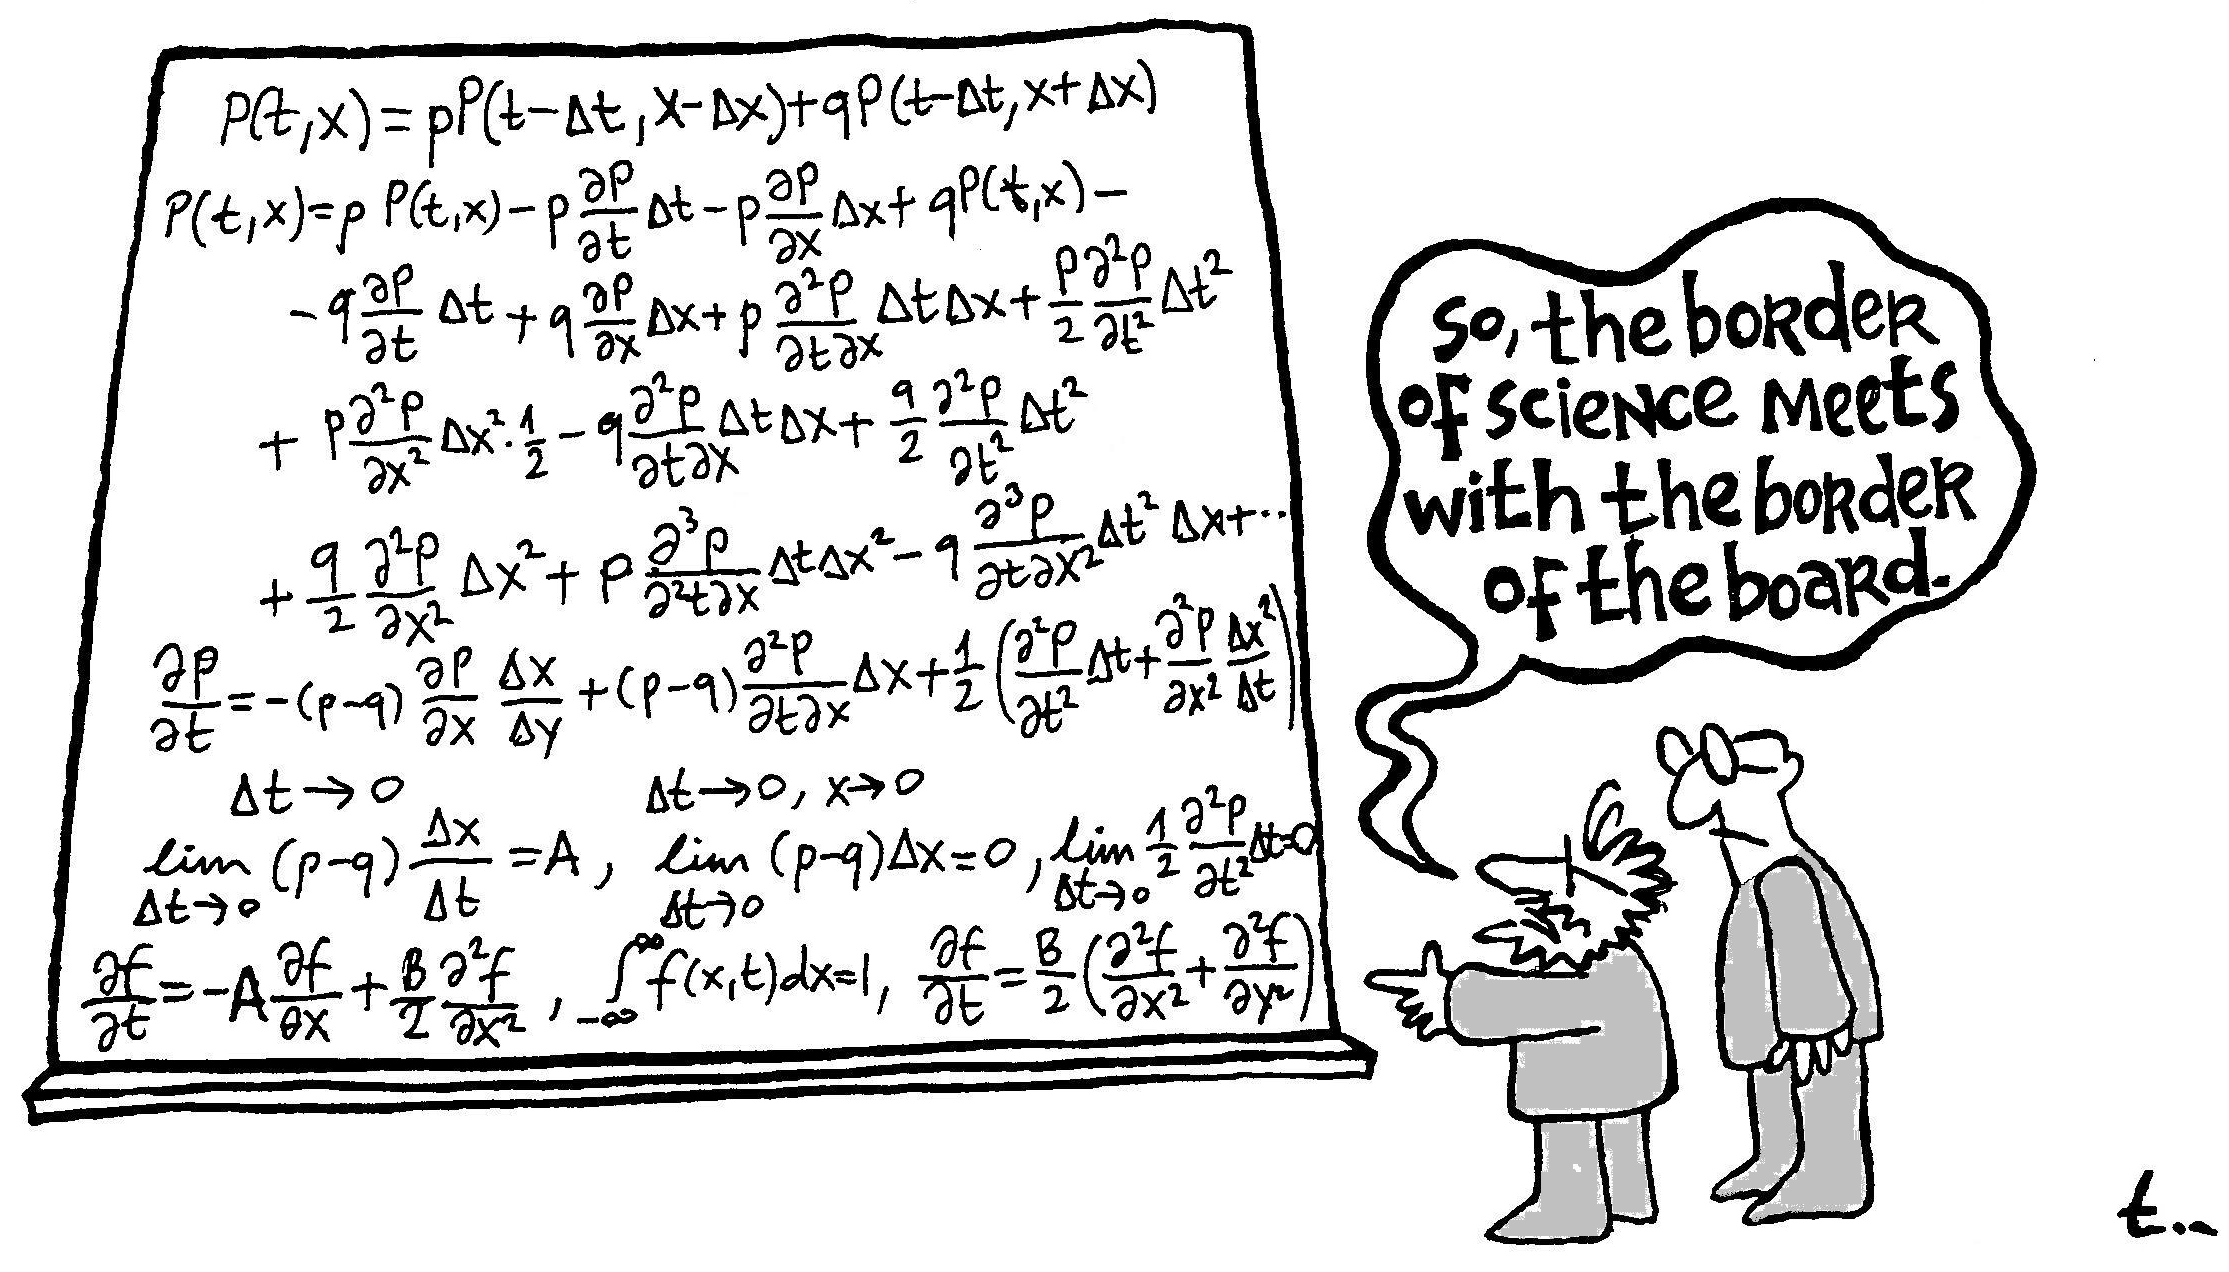 P(t,x)=pP(t-Δt,x-Δx)+qP(t-Δt,x+Δx)
P(t,x)=p P(t,x)-p ∂P/∂t Δt-p ∂P/∂x Δx+qP(t,x)-
-q ∂P/∂t Δt+q ∂P/∂x Δx+p ∂²P/∂t∂x ΔtΔx+p/2 ∂²P/∂t² Δt²
+p ∂²P/∂x² Δx²·1/2-q ∂²P/∂t∂x ΔtΔx+q/2 ∂²P/∂t² Δt²
+q/2 ∂²P/∂x² Δx²+p ∂³P/∂²t∂x ΔtΔx²-q ∂³P/∂t∂x² Δt² Δx+...
∂P/∂t=-(p-q) ∂P/∂x Δx/Δy+(p-q) ∂²P/∂t∂x Δx+1/2(∂²P/∂t² Δt+∂²P/∂x² Δx²/Δt)
Δt→0 Δt→0, x→0
lim Δt→0 (p-q) Δx/Δt=A, lim Δt→0 (p-q)Δx=0, lim Δt→0 1/2 ∂²P/∂t² Δt=0
∂f/∂t=-A ∂f/θx+B/2 ∂²f/∂x², ∫-∞ ∞ f(x,t)dx=1, ∂f/∂t=B/2(∂²f/∂x²+∂²f/∂y²)
So, the border
of science meets
with the border
of the board.
t...